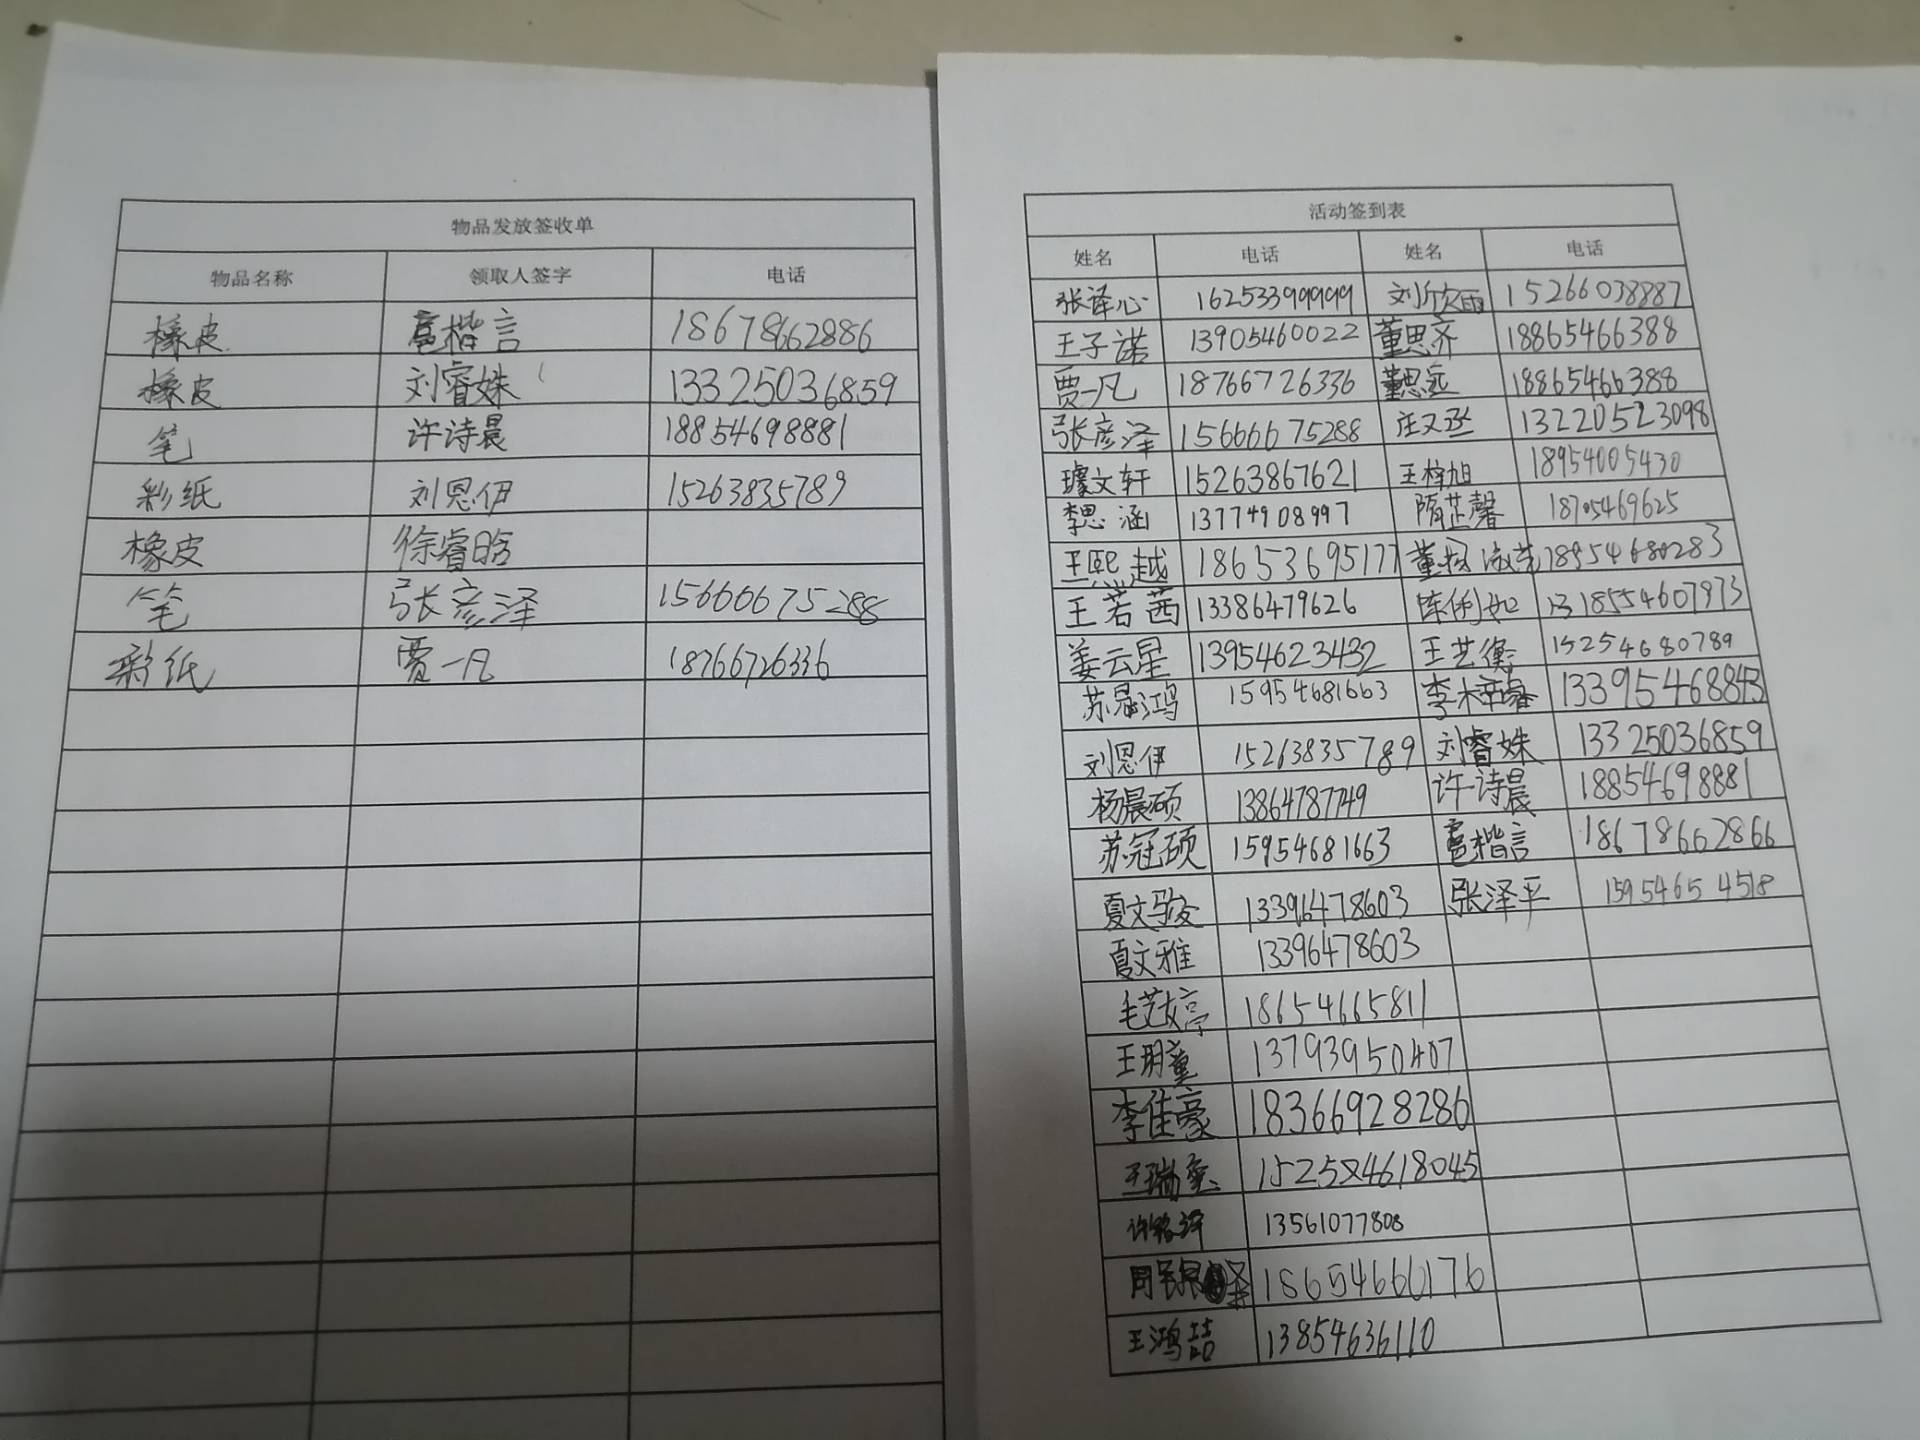 物品发放签收单
物品名称 领取人签字 电话
橡皮 扈楷言 18678662886
橡皮 刘睿姝 13325036859
笔 许诗晨 18854698881
彩纸 刘恩伊 15263835789
橡皮 徐睿晗
笔 张彦泽 15666675288
彩纸 贾一凡 18766726336
活动签到表
姓名 电话 姓名 电话
张译心 16253399999 刘欣雨 15266038887
王子诺 13905460022 董思齐 18865466388
贾一凡 18766726336 董思远 18865466388
张彦泽 15666675288 庄又丞 13220523098
璩文轩 15263867621 王梓旭 18954005430
李思涵 13774908997 隋芷馨 18705469625
王熙越 18653695177 董 18954680283
王若茜 13386479626 陈俐如
姜云星 13954623432 王艺衡 15254680789
苏晟鸿 15954681663 李木 13395468843
刘恩伊 15263835789 刘睿姝 13325036859
杨晨硕 13864787749 许诗晨 18854698881
苏冠硕 15954681663 扈楷言 18678662866
夏文骏 13396478603 张泽平 15954654518
夏文雅 13396478603
毛艺婷 18654665811
王玥童 13793950407
李佳豪 18366928286
王瑞
许铭泽 13561077808
周 泽 18654660176
王鸿喆 13854636110